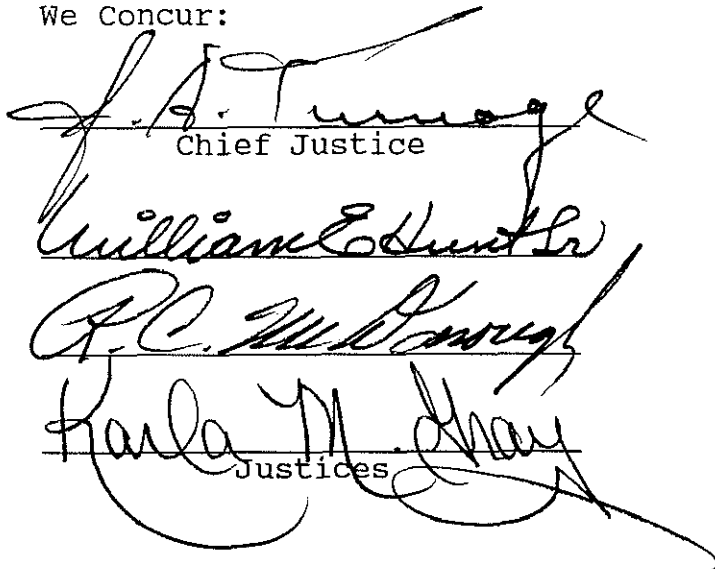 We Concur:
J. A. Turnage
Chief Justice
William E Hunt Sr
R. C. McDonough
Karla M. Gray
Justices